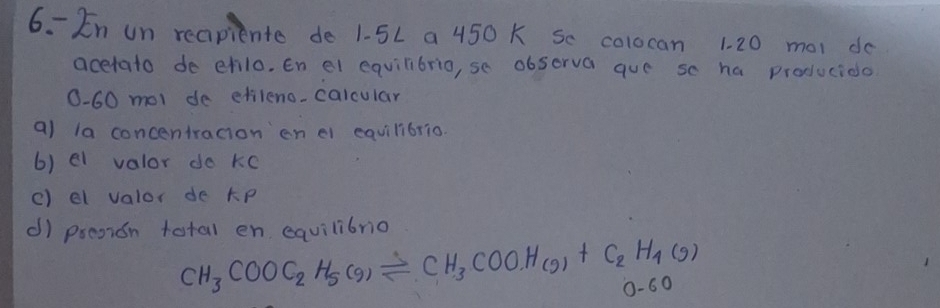 6.- En un recipiente de 1.5L a 450 K se colocan 1.20 mol de
acetato de etilo. En el equilibrio, se observa que se ha producido
0.60 mol de etileno. Calcular
a) la concentracion en el equilibrio.
b) el valor de KC
c) el valor de KP
d) presión total en equilibrio
CH₃COOC₂H₅(g) ⇌ CH₃COOH(g) + C₂H₄(g)
0.60